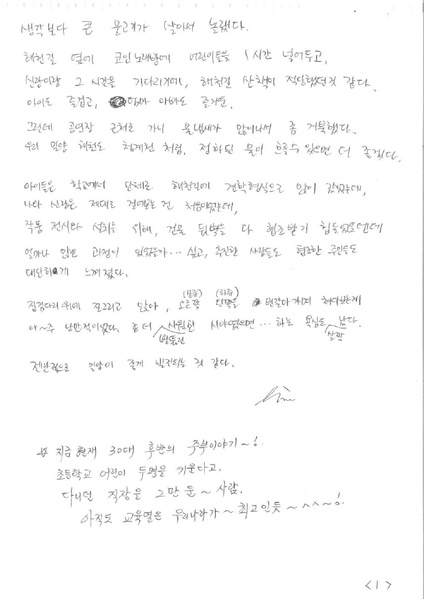 생각보다 큰 물고기가 살아서 놀랬다.
해천길 옆에 코인노래방에 어린이들을 1시간 넣어두고,
신랑이랑 그 시간을 기다리기에, 해천길 산책이 적당했던것 같다.
아이도 즐겁고, 엄마 아빠도 즐거운.
그런데 공연장 근처로 가니 물냄새가 많이나서 좀 거북했다.
우리 밀양 해천도 청계천 처럼. 정화된 물이 흐를수 있으면 더 좋겠다.
아이들은 학교에서 단체로 해천길에 견학형식으로 많이 갔었는데,
나와 신랑은 제대로 걸어본 건 처음이었는데,
작품 전시와 설치를 위해, 건물 뒷벽을 다 협조받기 힘들었을텐데
얼마나 많은 과정이 있었을까... 싶고, 추진한 사람들도 협조한 주민들도
대단하게 느껴졌다.
징검다리 위에 쪼그리고 앉아, 오른쪽 왼쪽을 번갈아가며 쳐다본게
아~주 낭만적이었다. 좀 더 시원한 시야였으면... 하는 욕심도 났다.
살짝
전반적으로 밀양이 좋게 발전되는 것 같다.
※ 지금 현재 30대 후반의 주부이야기~!
초등학교 어린이 두명을 키운다고.
다니던 직장을 그만 둔~ 사람.
아직도 교육열은 우리나라가~ 최고인듯~^^~!
<1>